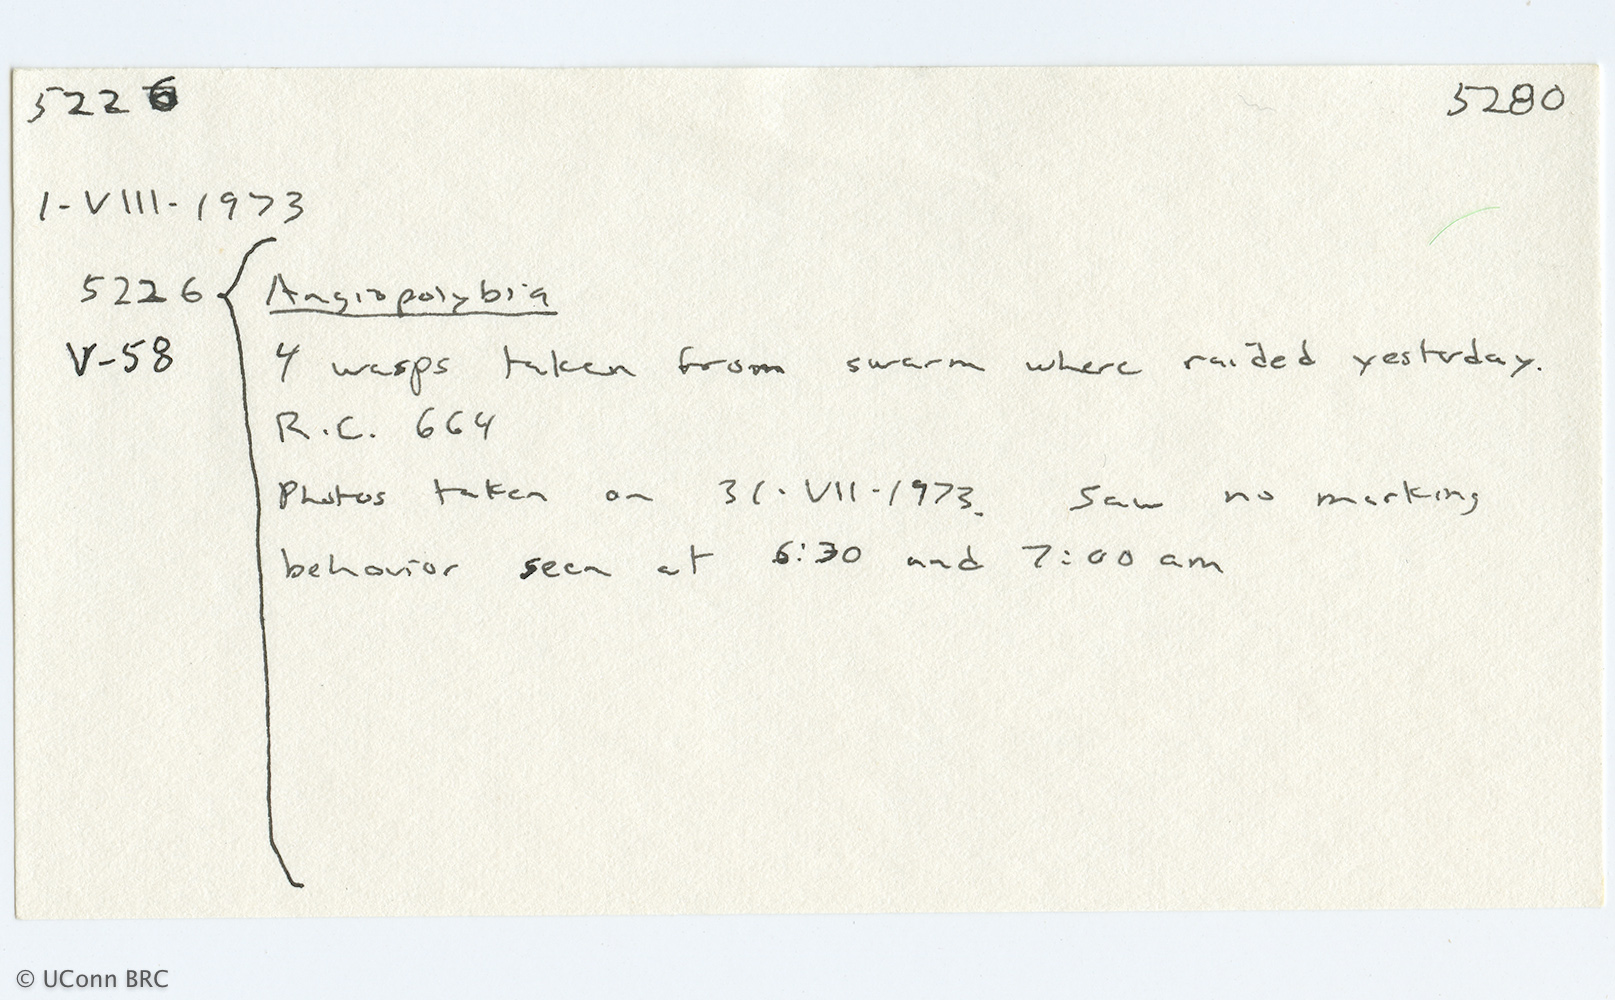 5226 5280
1-VIII-1973
5226 Angiopolybia
V-58 4 wasps taken from swarm where raided yesterday.
R.C. 664
Photos taken on 31-VII-1973. Saw no marking
behavior seen at 6:30 and 7:00 am
© UConn BRC